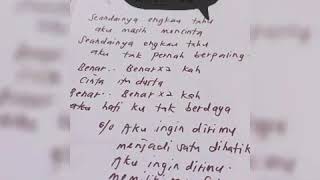 Seandainya engkau tahu
aku masih mencinta
Seandainya engkau tahu
aku tak pernah berpaling
Benar.. Benar x2 kah
Cinta itu dusta
Benar.. Benar x2 kah
aku hati ku tak berdaya
o/o Aku ingin dirimu
menjadi satu dihatik
Aku ingin dirimu.